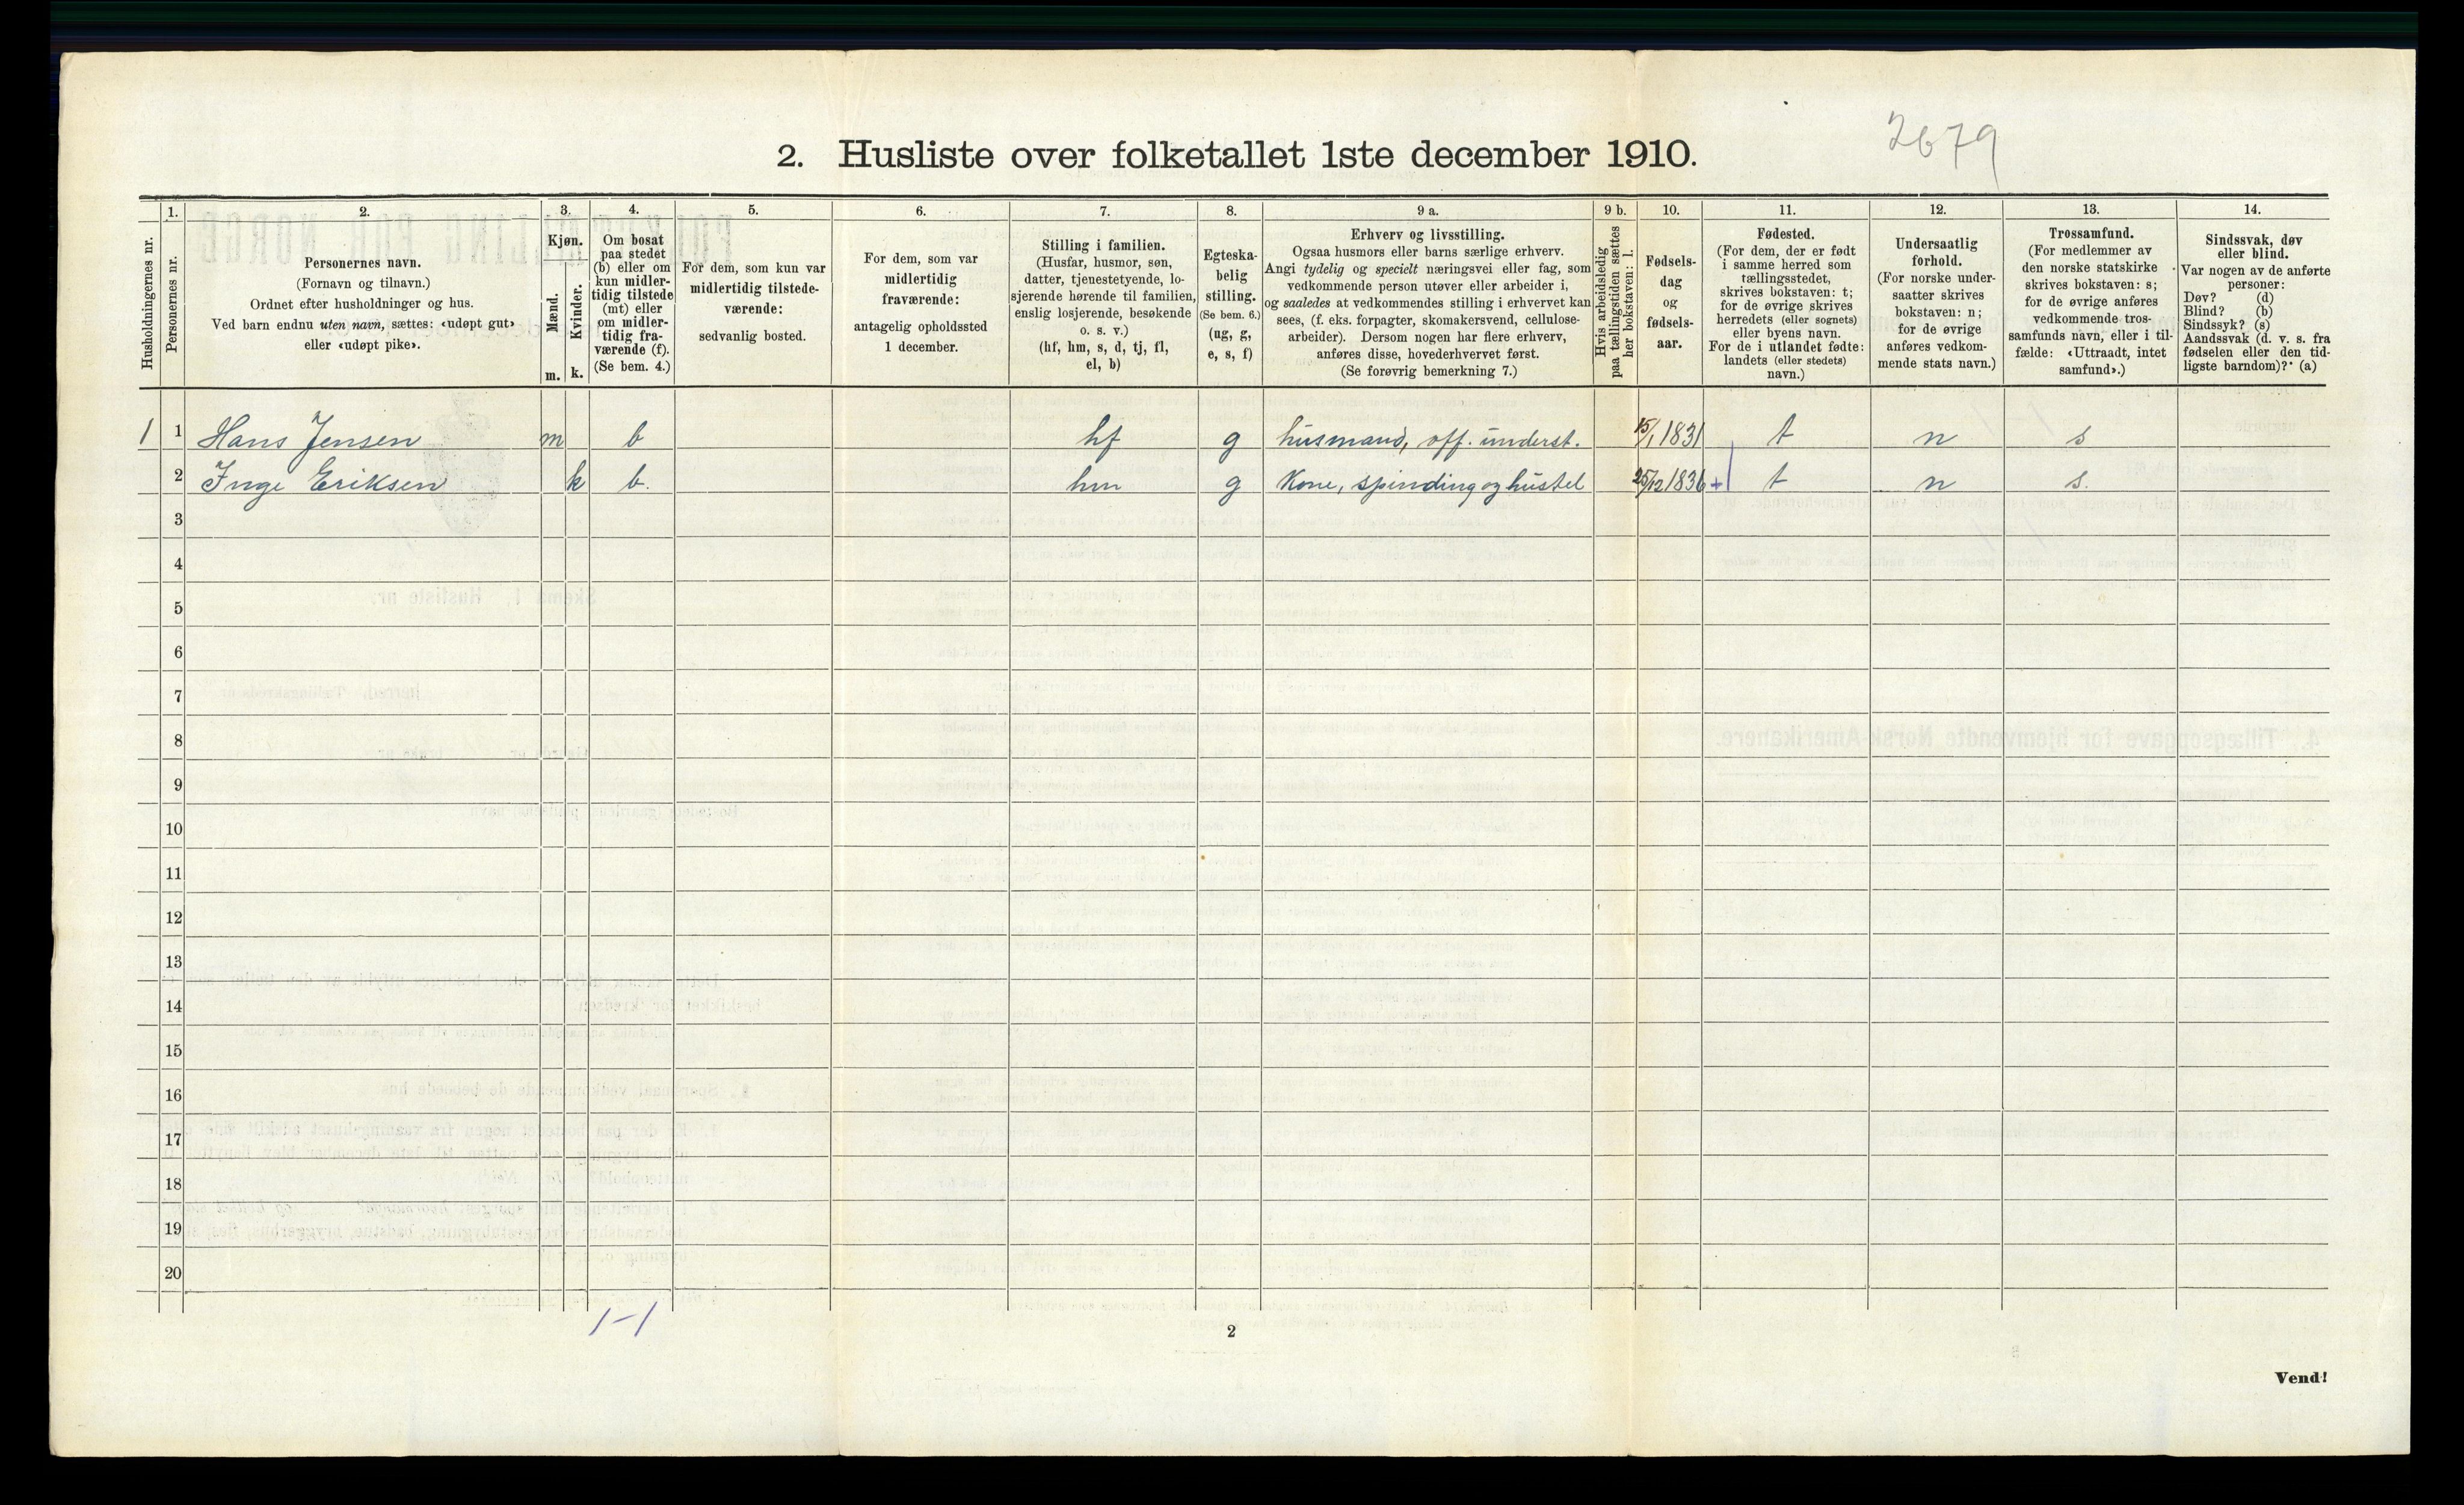 2679
2. Husliste over folketallet 1ste december 1910.
Husholdningernes nr.
1.
Personernes nr.
2.
Personernes navn.
(Fornavn og tilnavn.)
Ordnet efter husholdninger og hus.
Ved barn endnu uten navn, sættes: «udøpt gut»
eller «udøpt pike».
3.
Kjøn.
Mænd.
Kvinder.
m. k.
4.
Om bosat
paa stedet
(b) eller om
kun midler-
tidig tilstede
(mt) eller
om midler-
tidig fra-
værende (f).
(Se bem. 4.)
5.
For dem, som kun var
midlertidig tilstede-
værende:
sedvanlig bosted.
6.
For dem, som var
midlertidig
fraværende:
antagelig opholdssted
1 december.
7.
Stilling i familien.
(Husfar, husmor, søn,
datter, tjenestetyende, lo-
sjerende hørende til familien,
enslig losjerende, besøkende
o. s. v.)
(hf, hm, s, d, tj, fl,
el, b)
8.
Egteska-
belig
stilling.
(Se bem. 6.)
(ug, g,
e, s, f)
9 a.
Erhverv og livsstilling.
Ogsaa husmors eller barns særlige erhverv.
Angi tydelig og specielt næringsvei eller fag, som
vedkommende person utøver eller arbeider i,
og saaledes at vedkommendes stilling i erhvervet kan
sees, (f. eks. forpagter, skomakersvend, cellulose-
arbeider). Dersom nogen har flere erhverv,
anføres disse, hovederhvervet først.
(Se forøvrig bemerkning 7.)
9 b.
Hvis arbeidsledig
paa tællingstiden sættes
her bokstaven: l.
10.
Fødsels-
dag
og
fødsels-
aar.
11.
Fødested.
(For dem, der er født
i samme herred som
tællingsstedet,
skrives bokstaven: t;
for de øvrige skrives
herredets (eller sognets)
eller byens navn.
For de i utlandet fødte:
landets (eller stedets)
navn.)
12.
Undersaatlig
forhold.
(For norske under-
saatter skrives
bokstaven: n;
for de øvrige
anføres vedkom-
mende stats navn.)
13.
Trossamfund.
(For medlemmer av
den norske statskirke
skrives bokstaven: s;
for de øvrige anføres
vedkommende tros-
samfunds navn, eller i til-
fælde: «Uttraadt, intet
samfund».)
14.
Sindssvak, døv
eller blind.
Var nogen av de anførte
personer:
Døv? (d)
Blind? (b)
Sindssyk? (s)
Aandssvak (d. v. s. fra
fødselen eller den tid-
ligste barndom)? (a)
1 1 Hans Jensen m b hf g husmand, off. underst. 15/1 1831 t n s
2 Inge Eriksen k b. hm g Kone, spinding og hustel 25/12 1836 + t n s.
3
4
5
6
7
8
9
10
11
12
13
14
15
16
17
18
19
20
1-1
2
Vend!